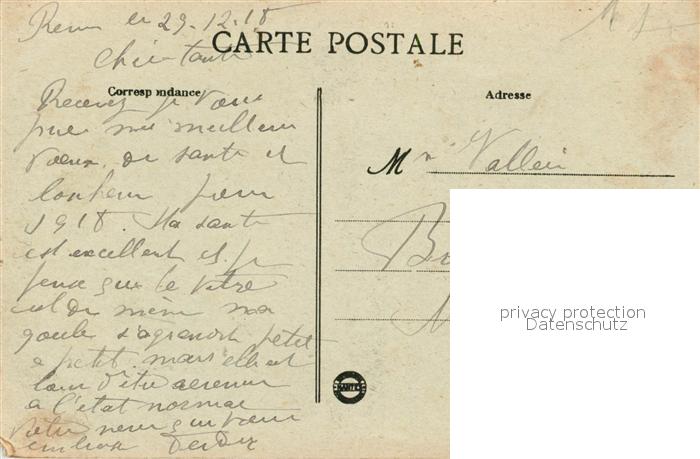 le 29-12-18
CARTE POSTALE
Chère tante
Correspondance
Adresse
Recevez je vous
prie mes meilleurs
vœux de santé et
bonheur pour
1918. Ma santé
est excellente et je
pense que le vôtre
est de même ma
gueule s'agrandit petit
à petit mais elle est
loin d'être
à l'état normal
Votre neveu qui vous
embrasse
Mme Vallein
privacy protection
Datenschutz